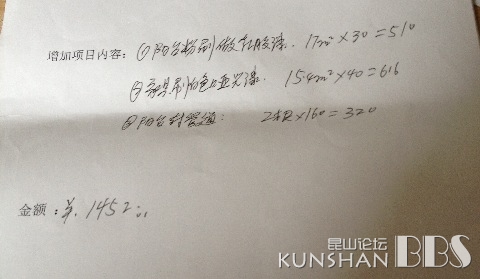 增加项目内容: ①阳台粉刷做乳胶漆. 17m²×30=510
②家具刷白色哑光漆. 15.4m²×40=616
③阳台封管道: 2根×160=320
金额:¥.1452
昆山论坛
KUNSHAN BBS